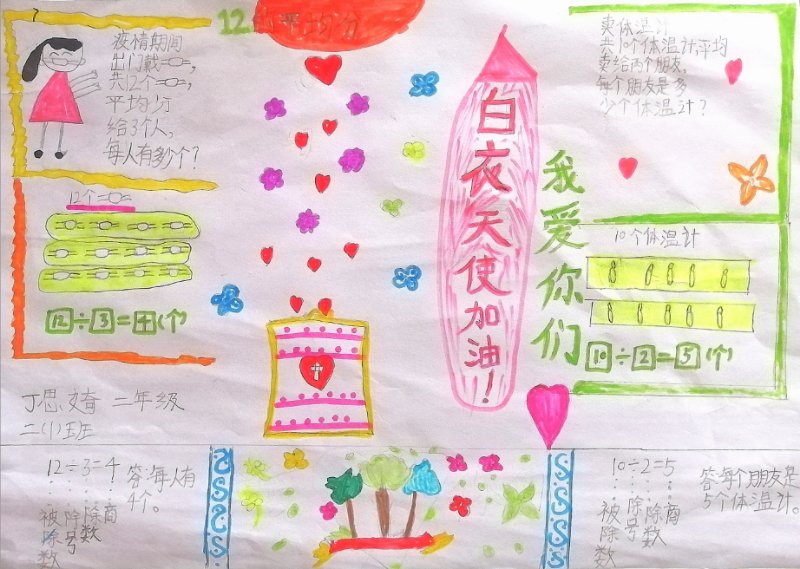 12的平均分
疫情期间
出门戴
共12个
平均分
给3个人，
每人有多少个？
12个
12÷3=4(个)
白衣天使加油！
我爱你们
卖体温计
共10个体温计,平均
卖给两个朋友,
每个朋友是多
少个体温计？
10个体温计
10÷2=5(个)
丁思文奇 二年级
二(1)班
12÷3=4
被除数
除号
除数
商
答:每人有
4个。
10÷2=5
被除数
除号
除数
商
答:每个朋友是
5个体温计。